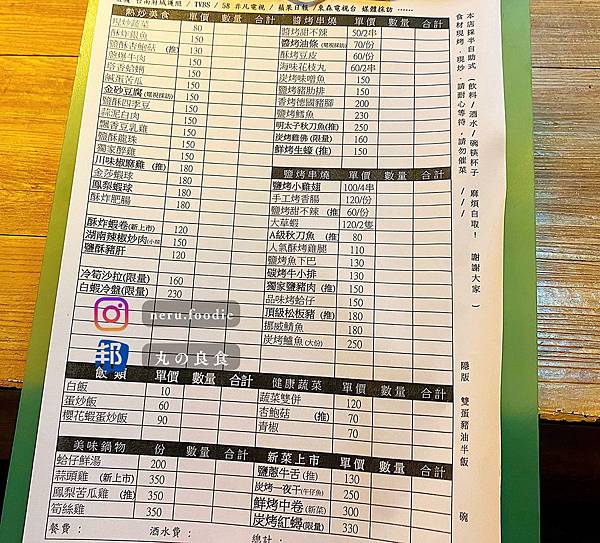 台南府城護照 / TVBS / 58 非凡電視 / 蘋果日報 / 東森電視台 媒體採訪 ......
熱炒美食 單價 數量 合計
現炒蔬菜 80
酥炸銀魚 150
鹽酥杏鮑菇 (推) 130
蔥爆牛肉 150
塔香蛤蜊 150
鹹蛋苦瓜 150
金砂豆腐 (電視採訪) 150
鹽酥四季豆 150
蒜泥白肉 150
飄香豆乳雞 150
鹽酥龍珠 150
獨家醉雞 150
川味椒麻雞 (推) 180
金莎蝦球 180
鳳梨蝦球 180
酥炸肥腸 180
酥炸蝦卷(新上市) 120
湖南辣椒炒肉(小辣 150
鹽酥豬肝 120
冷筍沙拉(限量) 160
白蝦冷盤(限量) 230
醬烤串燒 單價 數量 合計
醬烤甜不辣 50/2串
醬烤油條 (電視採訪) 70/份
酥烤豆皮 60/份
海味花枝丸 60/2串
炭烤味噌魚 150
鹽烤豬肋排 150
香烤德國豬腳 200
鹽烤鱈魚 230
明太子秋刀魚(推) 250
炭烤雞佛 (限量) 160
鮮烤生蠔 (推) 150
鹽烤串燒 單價 數量 合計
鹽烤小雞翅 100/4串
手工烤香腸 120/份
鹽烤甜不辣 (推) 60/份
大草蝦 120/2隻
A級秋刀魚 (推) 80
人氣酥烤雞腿 110
鹽烤魚下巴 130
碳烤牛小排 130
獨家鹽豬肉 (推) 150
品味烤蛤仔 150
頂級松板豬 (推) 180
挪威鯖魚 180
炭烤鱸魚(大份) 250
neru.foodie
邦 丸の良食
飯類 單價 數量 合計
白飯 10
蛋炒飯 60
櫻花蝦蛋炒飯 90
健康蔬菜 單價 數量 合計
蔬菜雙併 120
杏鮑菇 (推) 70
青椒 70
美味鍋物 份 數量 合計
蛤仔鮮湯 200
蒜頭雞 (新上市) 350
鳳梨苦瓜雞 (推) 350
筍絲雞 350
新菜上市 單價 數量 合計
鹽蔥牛舌 (推) 130
炭烤一夜干(午仔魚) 250
鮮烤中卷 (新菜) 300
炭烤紅蟳(限量) 330
餐費: 酒水費: 總計:
本店採半自助式 (飲料/酒水/碗筷杯子 麻煩自取! 謝謝大家 )
食材現烤.現炒.請耐心等待,請勿催菜 ///
隱版 雙蛋豬油半飯 碗